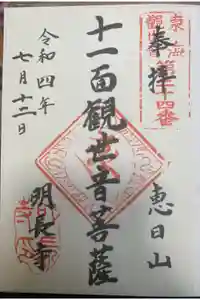 奉拝
恵日山
十一面観世音菩薩
令和四年
七月十二日
明長寺
東海
観世音
第三十四番